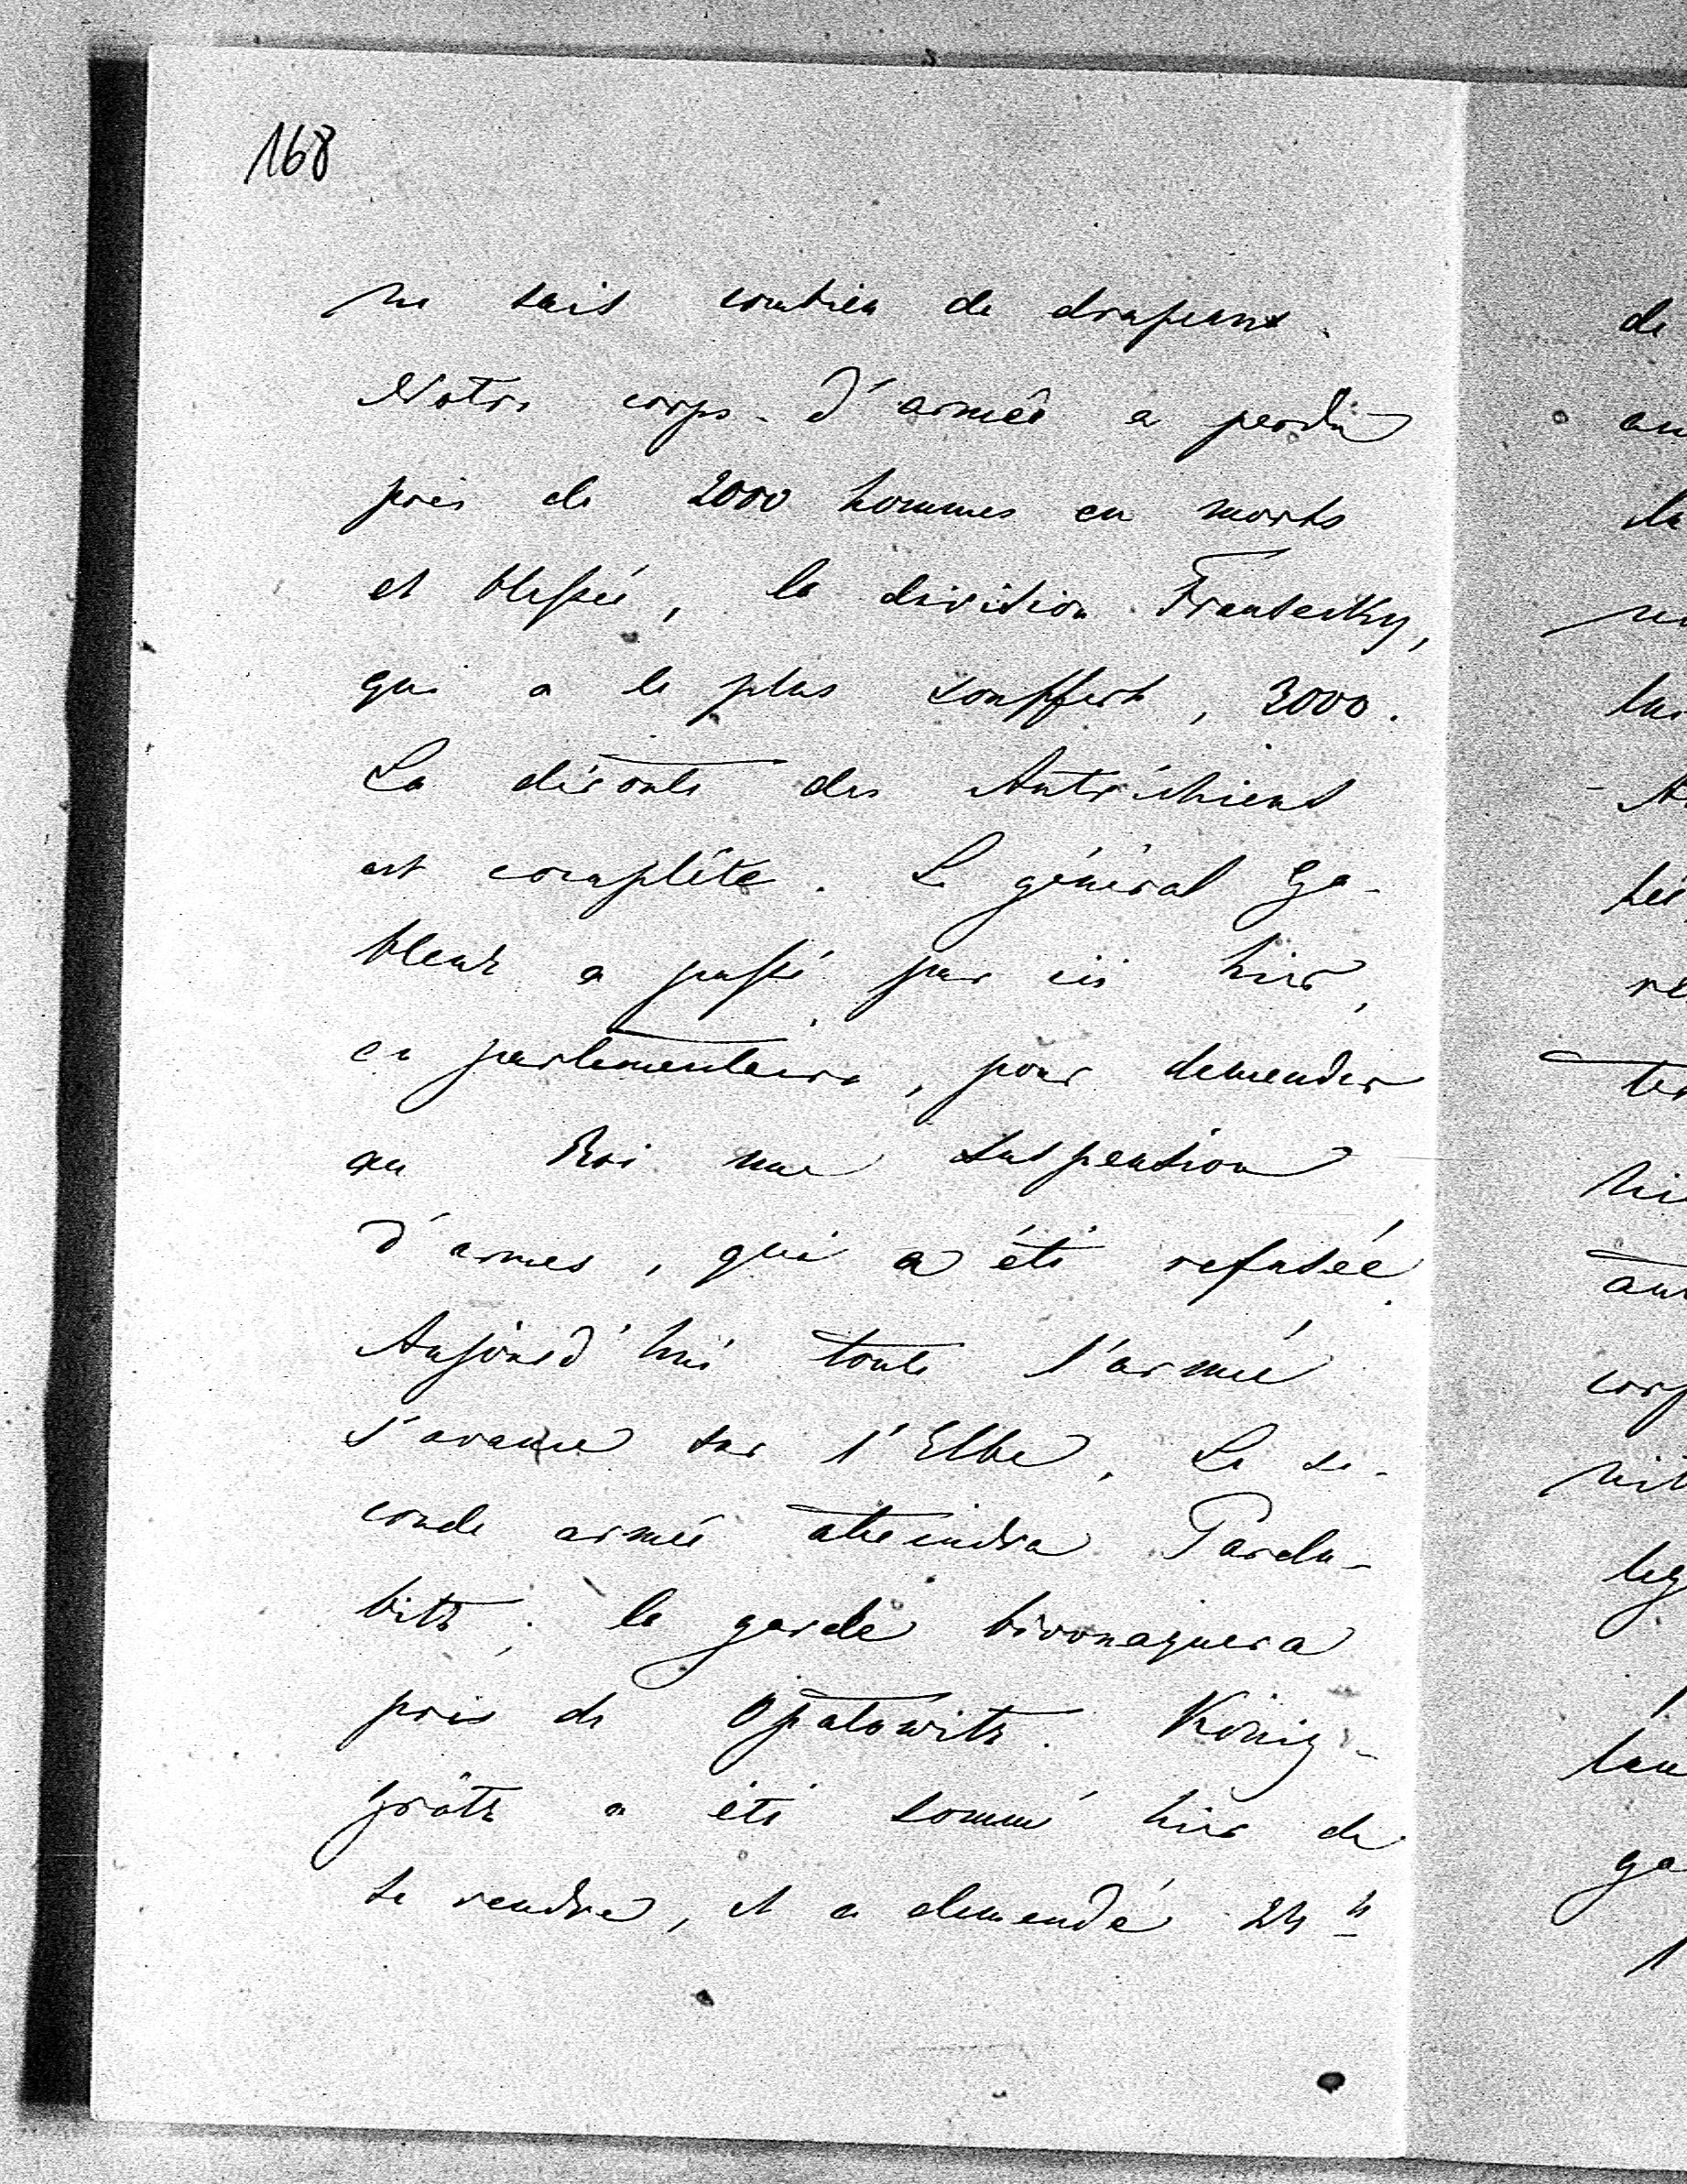 168
ne sais combien de drapeaux.
Notre corps-d'armée a perdu
près de 2000 hommes en morts
et blessés, la division Fransecky,
qui a le plus souffert, 3000.
La déroute des Autrichiens
est complète. Le général Ga-
blenz a passé par ici hier,
en parlementaire, pour demander
au Roi une suspension
d'armes, qui a été refusée.
Aujourd'hui toute l'armée
s'avance sur l'Elbe. La se-
conde armée atteindra Pardu-
bitz; la garde bivouaquera
près de Opatowitz. König-
grätz a été sommé hier de
se rendre, et a demandé 24 h
de
au
la
ter
corp
ga